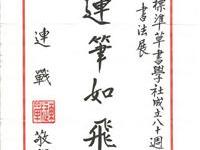 標準草書學社成立八十週
書法展
運筆如飛
連戰
敬